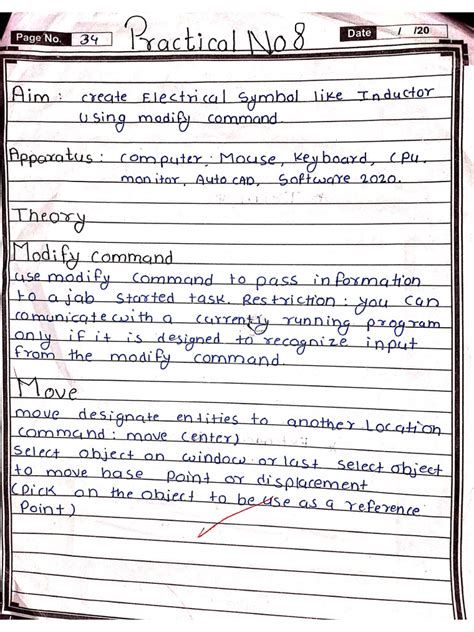 Page No. 34
Practical No 8
Date / /20
Aim : create Electrical Symbol like Inductor
using modify command.
Apparatus : computer, Mouse, Keyboard, CPU.
monitor, Auto CAD, Software 2020.
Theory
Modify command
use modify command to pass information
to a jab started task. Restriction : you can
comunicate with a currently running program
only if it is designed to recognize input
from the modify command.
Move
move designate entities to another location
command : move center)
Select object on window or last select object
to move base point or displacement
(Pick on the object to be use as a reference
Point)